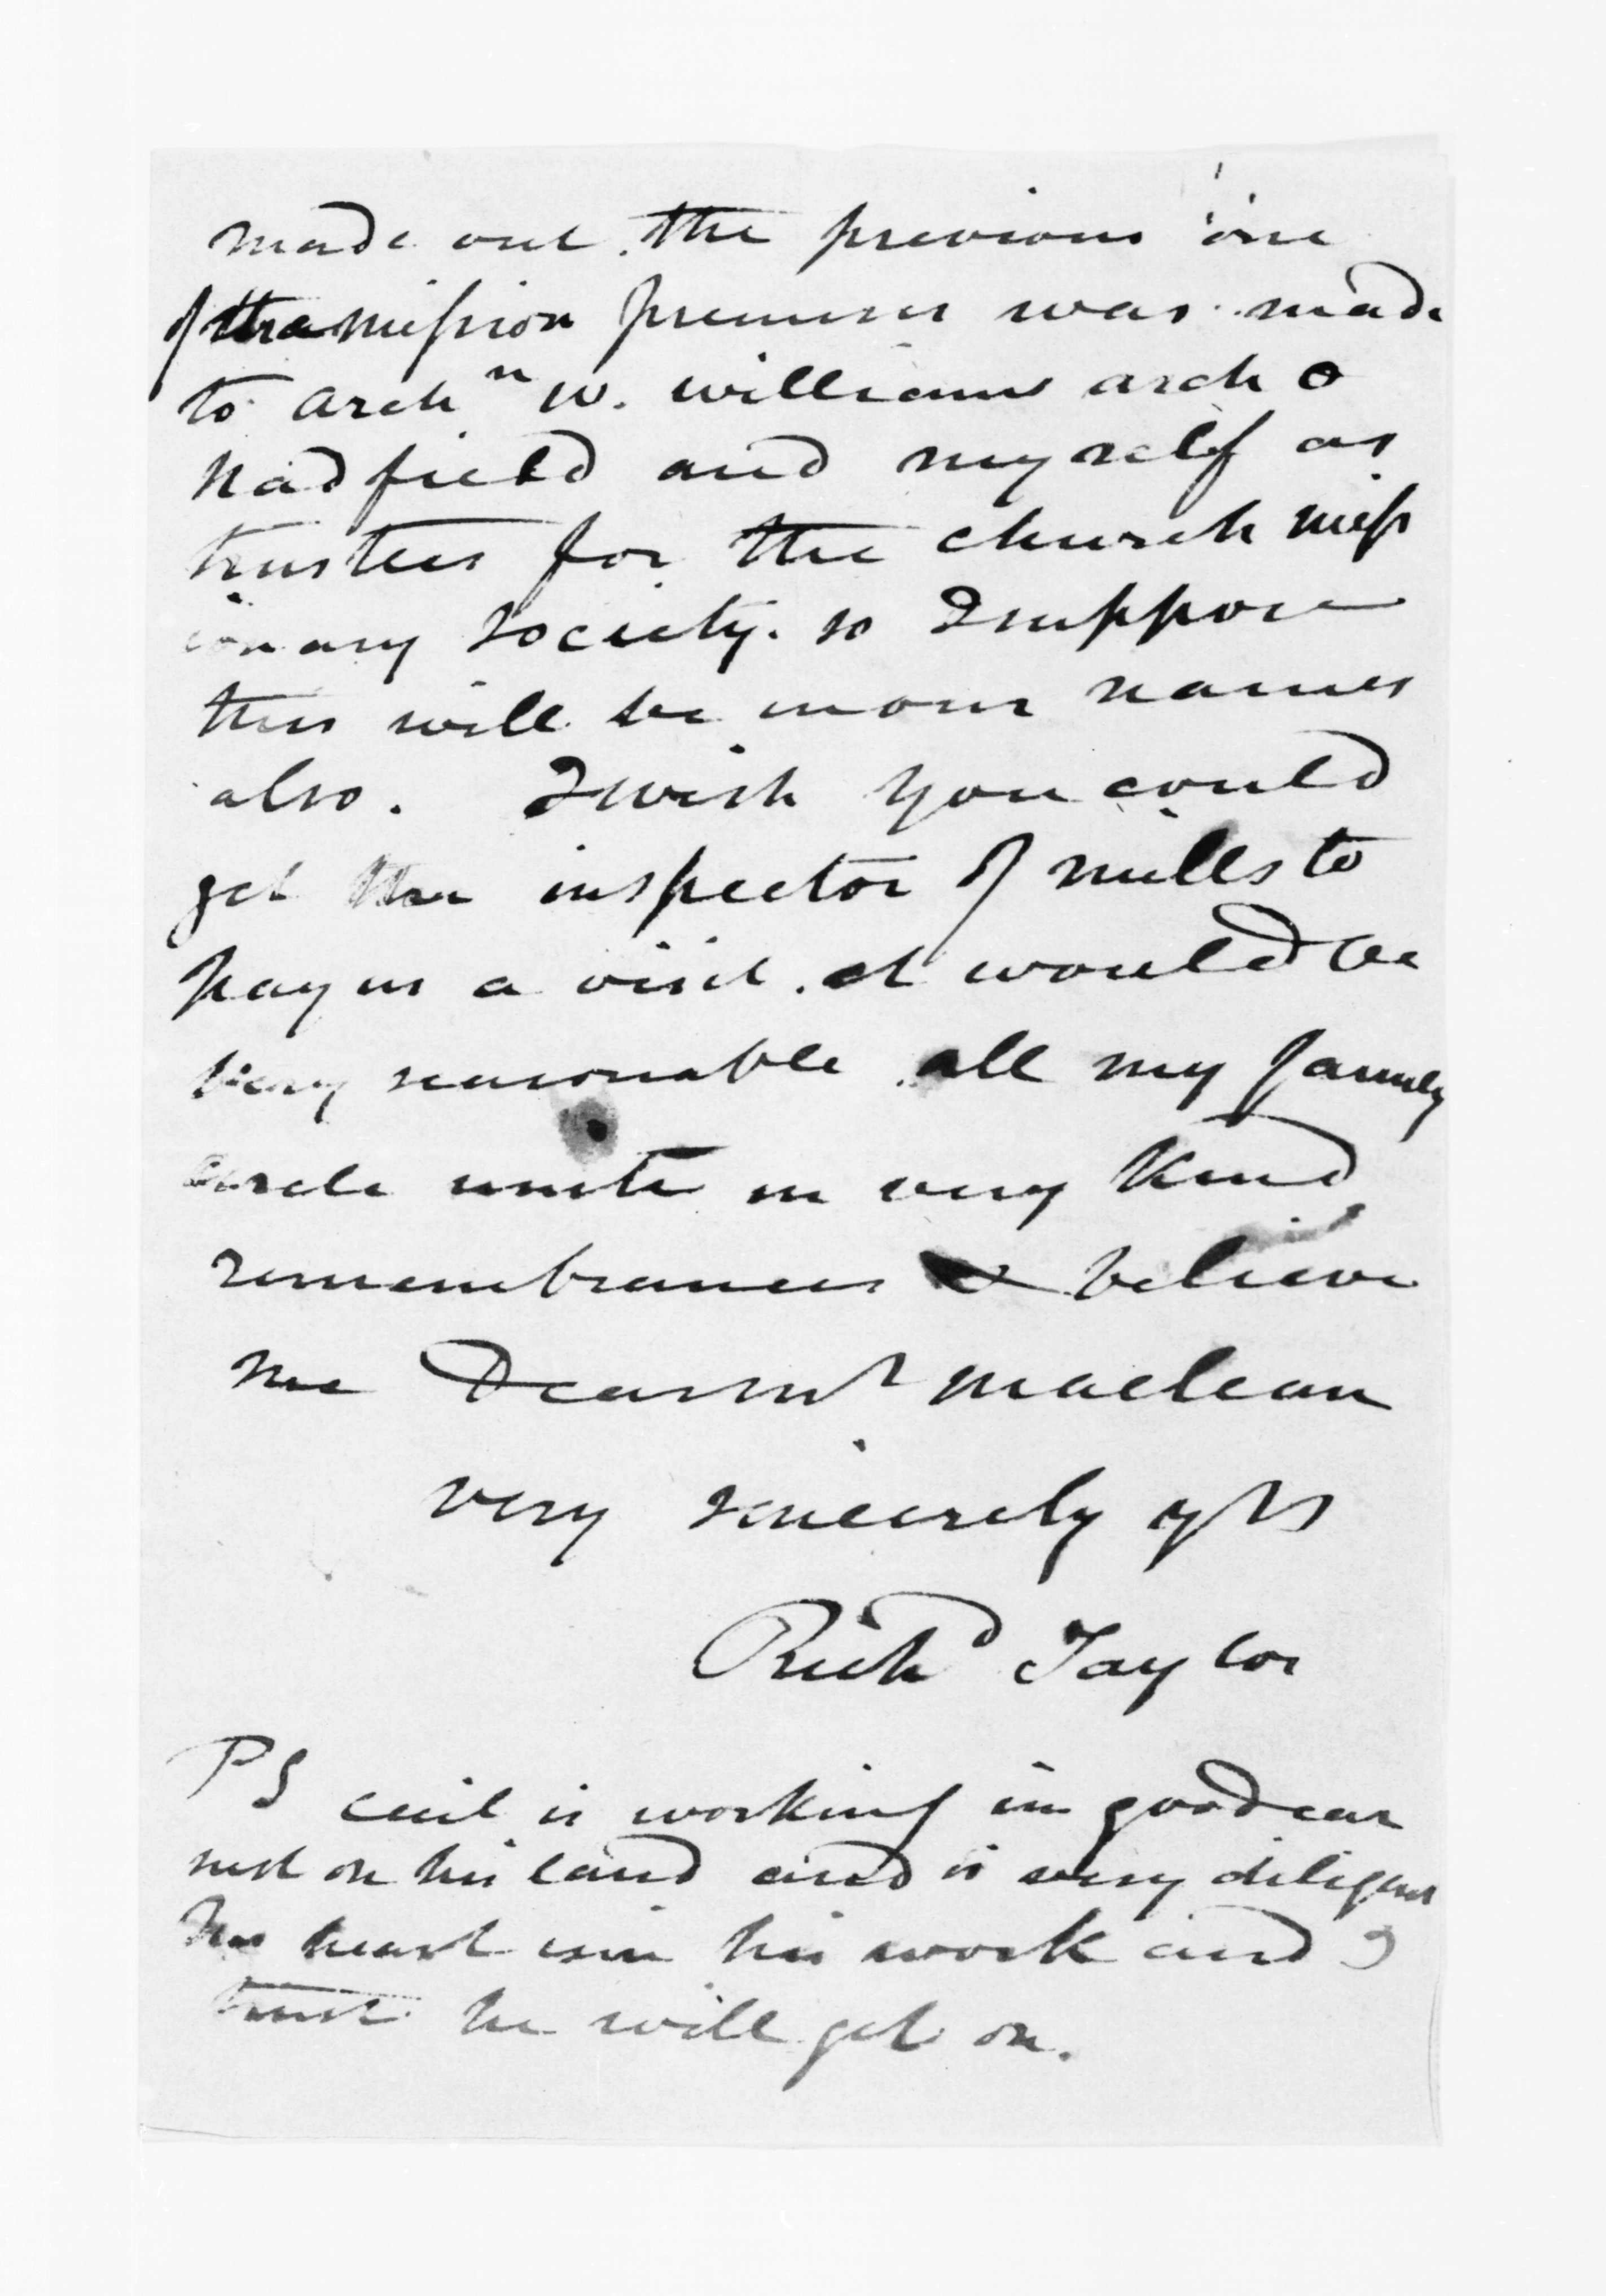 made out. the previous one
of the mission premises was made
to Archn W. Williams arch O
Hadfield and myself as
trustees for the church miss
ionary society. so I suppose
this will be in our names
also. I wish you could
get the inspector of mills to
pay us a visit. it would be
very seasonable all my family
circle unite in very kind
remembrances & believe
me Dear Mr Maclean
very sincerely yrs
Richd Taylor
PS Cecil is working in good ear
nest on his land and is very diligent
his heart is in his work and I
trust he will get on.